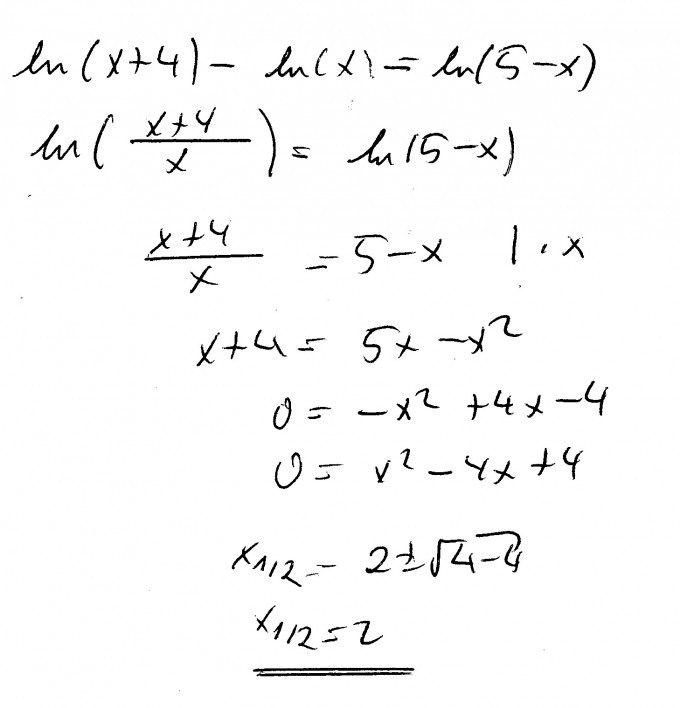 ln(x+4) - ln(x) = ln(5-x)
ln(\frac{x+4}{x}) = ln(5-x)
\frac{x+4}{x} = 5-x | · x
x+4 = 5x - x²
0 = -x² + 4x - 4
0 = x² - 4x + 4
x₁/₂ = 2 ± √4-4
x₁/₂ = 2